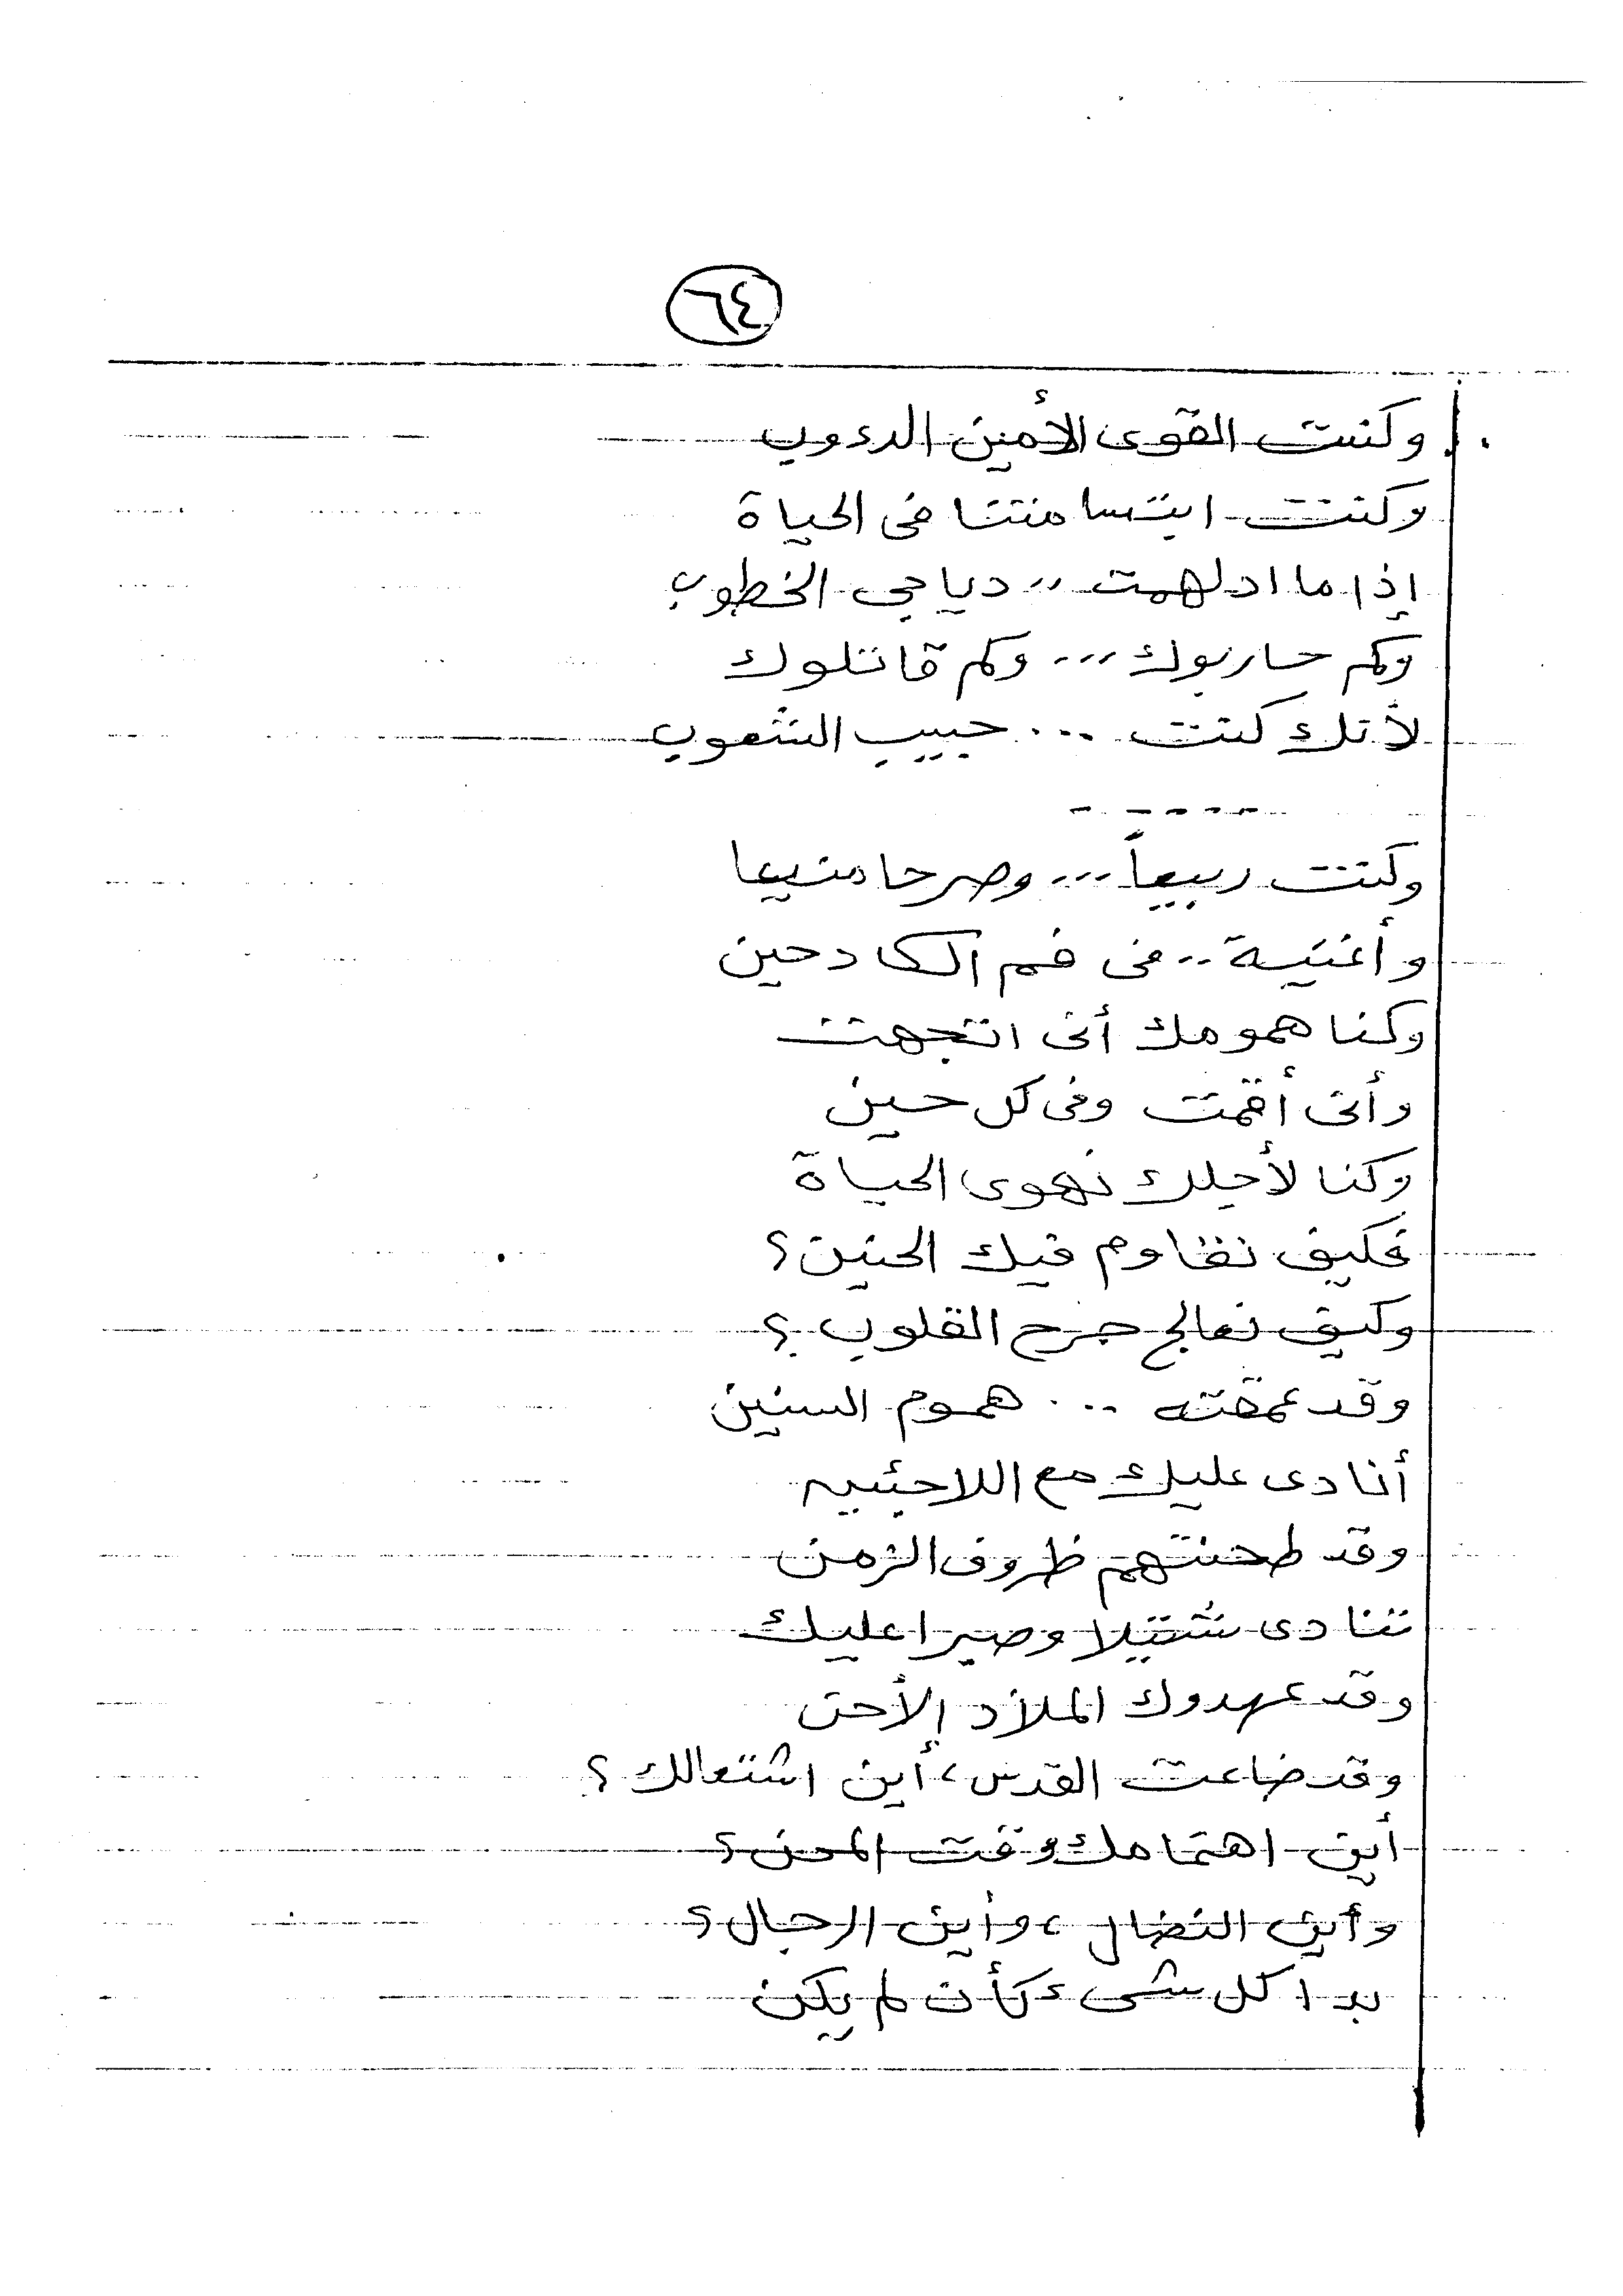 ٦٤
وكنت القوى الأمين الدءوب
وكنت ابتسامتنا فى الحياة
إذا ما ادلهمت .. دياجى الخطوب
وكم حاربوك ... وكم قاتلوك
لأنك كنت ... حبيب الشعوب
-----
وكنت ربيعاً ... وصرحا منيعا
وأغنية .. فى فم الكادحين
وكنا همومك أنى اتجهت
وأنى أقمت وفى كل حين
وكنا لأجلك نهوى الحياة
فكيف نقاوم فيك الحنين؟
وكيف نعالج جرح القلوب ؟
وقد عمقته ... هموم السنين
أنادى عليك مع اللاجئين
وقد طحنتهم ظروف الزمن
تنادى شتيلا وصبرا عليك
وقد عهدوك الملاذ الأحن
وقد ضاعت القدس، أين اشتعالك ؟
أين اهتمامك وقت المحن؟
وأين النضال، وأين الرجال؟
بدا كل شىء كأن لم يكن